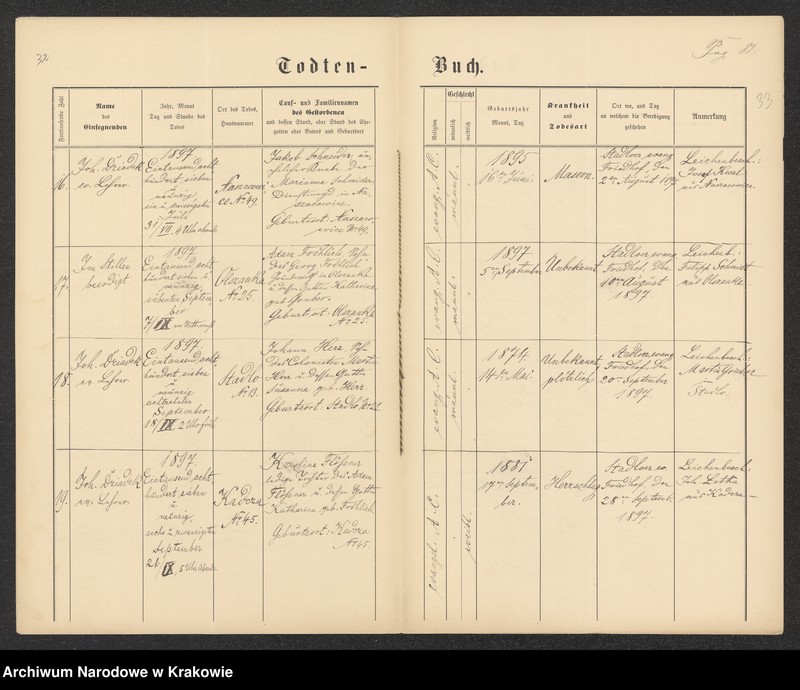 32
Todten-
Buch.
Pag.
33
Fortlaufende Zahl
Name
des
Einsegnenden
Jahr, Monat
Tag und Stunde des
Todes
Ort des Todes,
Hausnummer
Tauf- und Familiennamen
des Gestorbenen
und dessen Stand, oder Stand des Ehe-
gatten oder Vaters und Geburtsort
Religion
Geschlecht
männlich
weiblich
Geburtsjahr
Monat, Tag
Krankheit
und
Todesart
Ort wo, und Tag
an welchem die Beerdigung
geschehen
Anmerkung
16.
Joh. Driadek
ev. Lehrer.
1897
Eintausend acht
hundert sieben
u
neunzig
ein u. dreissigster
Juli
31/VII. 4 Uhr abends
No 49.
Jakob Schneider
Marianna Schneider
Dienstmagd in
Geburtsort:
No 49.
evang. A. C.
männl.
1895
16ten Juni.
Masern.
Stadloer evang.
Friedhof, den
2ten August 1897
Leichenbesch.:
Josef
aus
17.
Im Stillen
beerdigt
1897
Eintausend acht
hundert sieben u
neunzig
siebenten Septem
ber
7/IX
Olszanka
No 25.
Adam Fröhlich Sohn
des Georg Fröhlich
in Olszanka
u. dessen Gattin Katharina
geb. Gruber.
Geburtsort: Olszanka
No 25.
evang. A. C.
männl.
1897
5ten September
Unbekannt
Stadloer evang.
Friedhof, den
10ten August
1897.
Leichenb.:
Filipp Schmidt
aus Olszanka
18.
Joh. Driadek
ev. Lehrer
1897.
Eintausend acht
hundert sieben
u
neunzig
achtzehnten
September
18/IX, 2 Uhr früh
Stadlo
No 13.
Johann Herr, Sohn
des Colonisten Martin
Herr u. dessen Gattin
Susanna geb. Herr
Geburtsort: Stadlo No
evang. A. C.
männl.
1874.
14ten Mai.
Unbekannt,
plötzlich
Stadloer evang.
Friedhof, den
20ten September
1897.
Leichenbesch.:
Martin Gruber
in
Stadlo.
19.
Joh. Driadek
ev. Lehrer.
1897.
Eintausend acht
hundert sieben
u
neunzig,
sechs u. zwanzigster
September
26/IX, 5 Uhr abends
Kadcza
No 45.
Karoline Flössner
ledige Tochter des Adam
Flössner u. dessen Gattin
Katharina geb. Fröhlich
Geburtsort: Kadcza
No 45.
evangel. A. C.
weibl.
1881
17ten Septem
ber.
Herzschlag
Stadloer ev.
Friedhof, den
28ten Septemb.
1897.
Leichenbesch.:
Joh.
aus Kadcza
Archiwum Narodowe w Krakowie